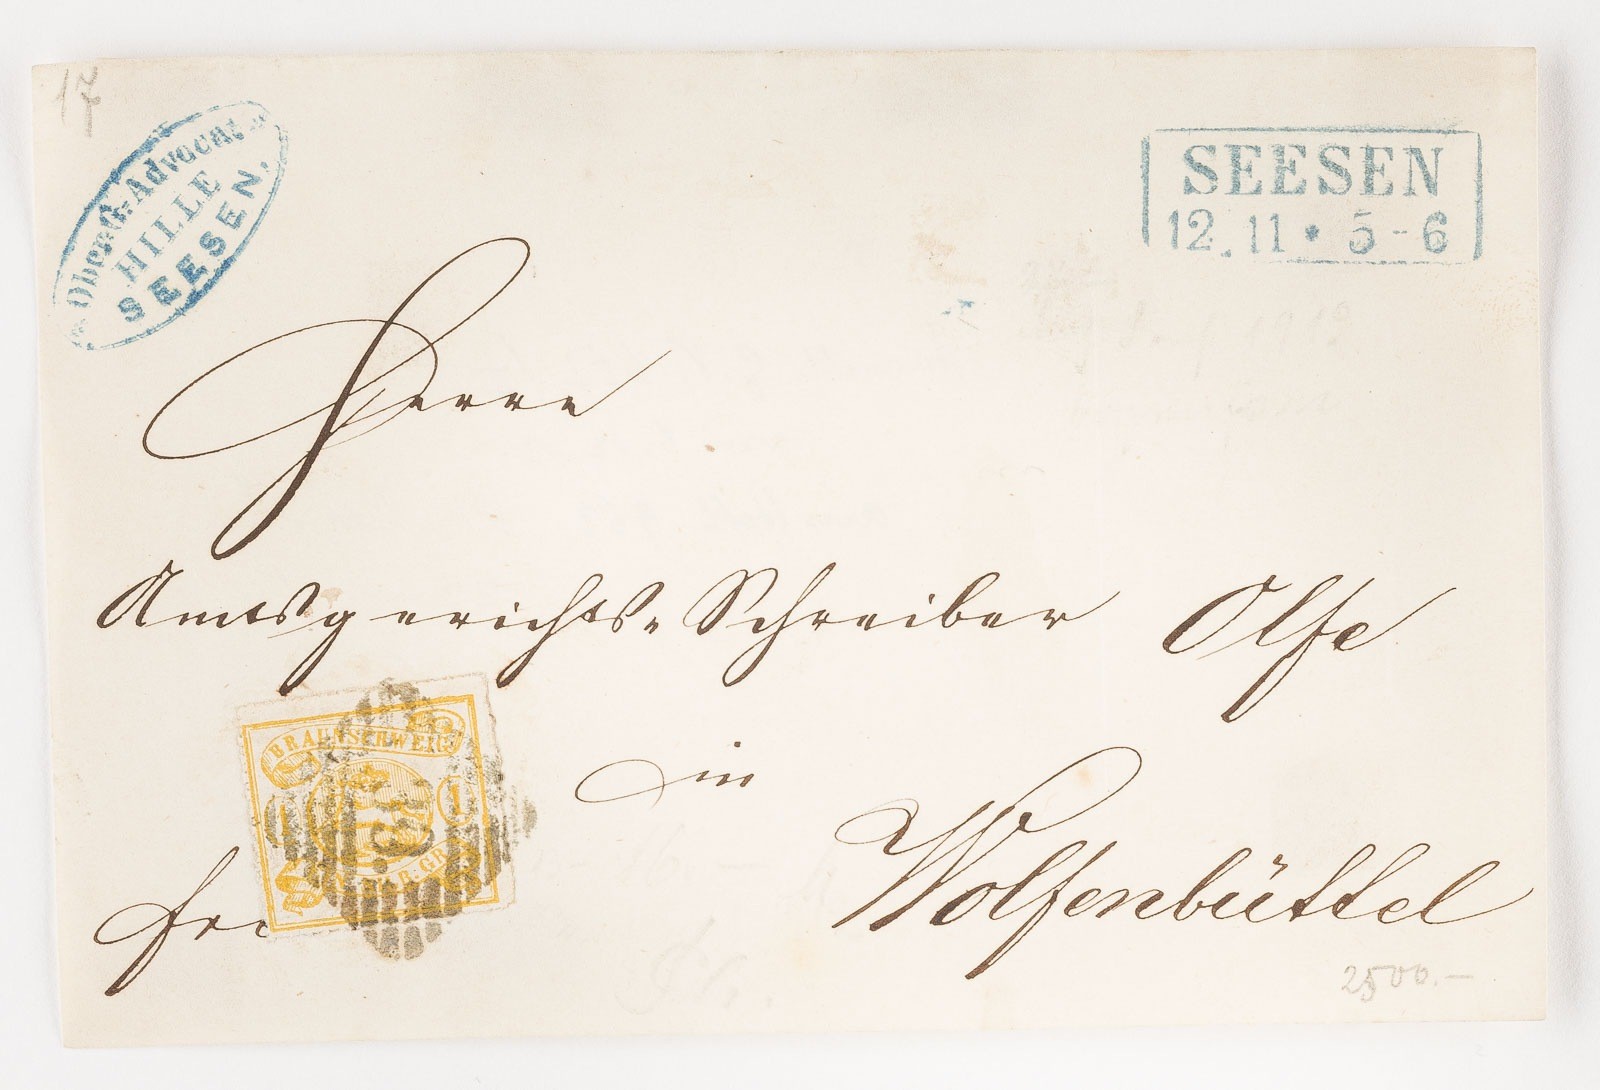 17
OberG.-Advocat
HILLE
SEESEN.
SEESEN
12.11 * 5-6
Herrn
Amtsgerichts-Schreiber Olfe
in
Wolfenbüttel
BRAUNSCHWEIG
1 1
GR.
fr
2500.-